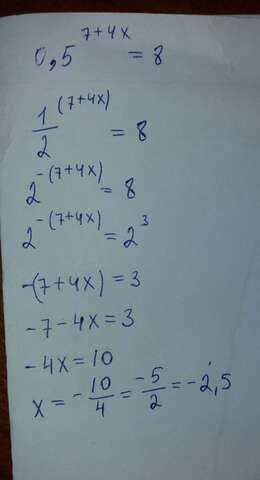 0,5^(7+4x) = 8
(1/2)^(7+4x) = 8
2^-(7+4x) = 8
2^-(7+4x) = 2^3
-(7+4x) = 3
-7-4x = 3
-4x = 10
x = -10/4 = -5/2 = -2,5